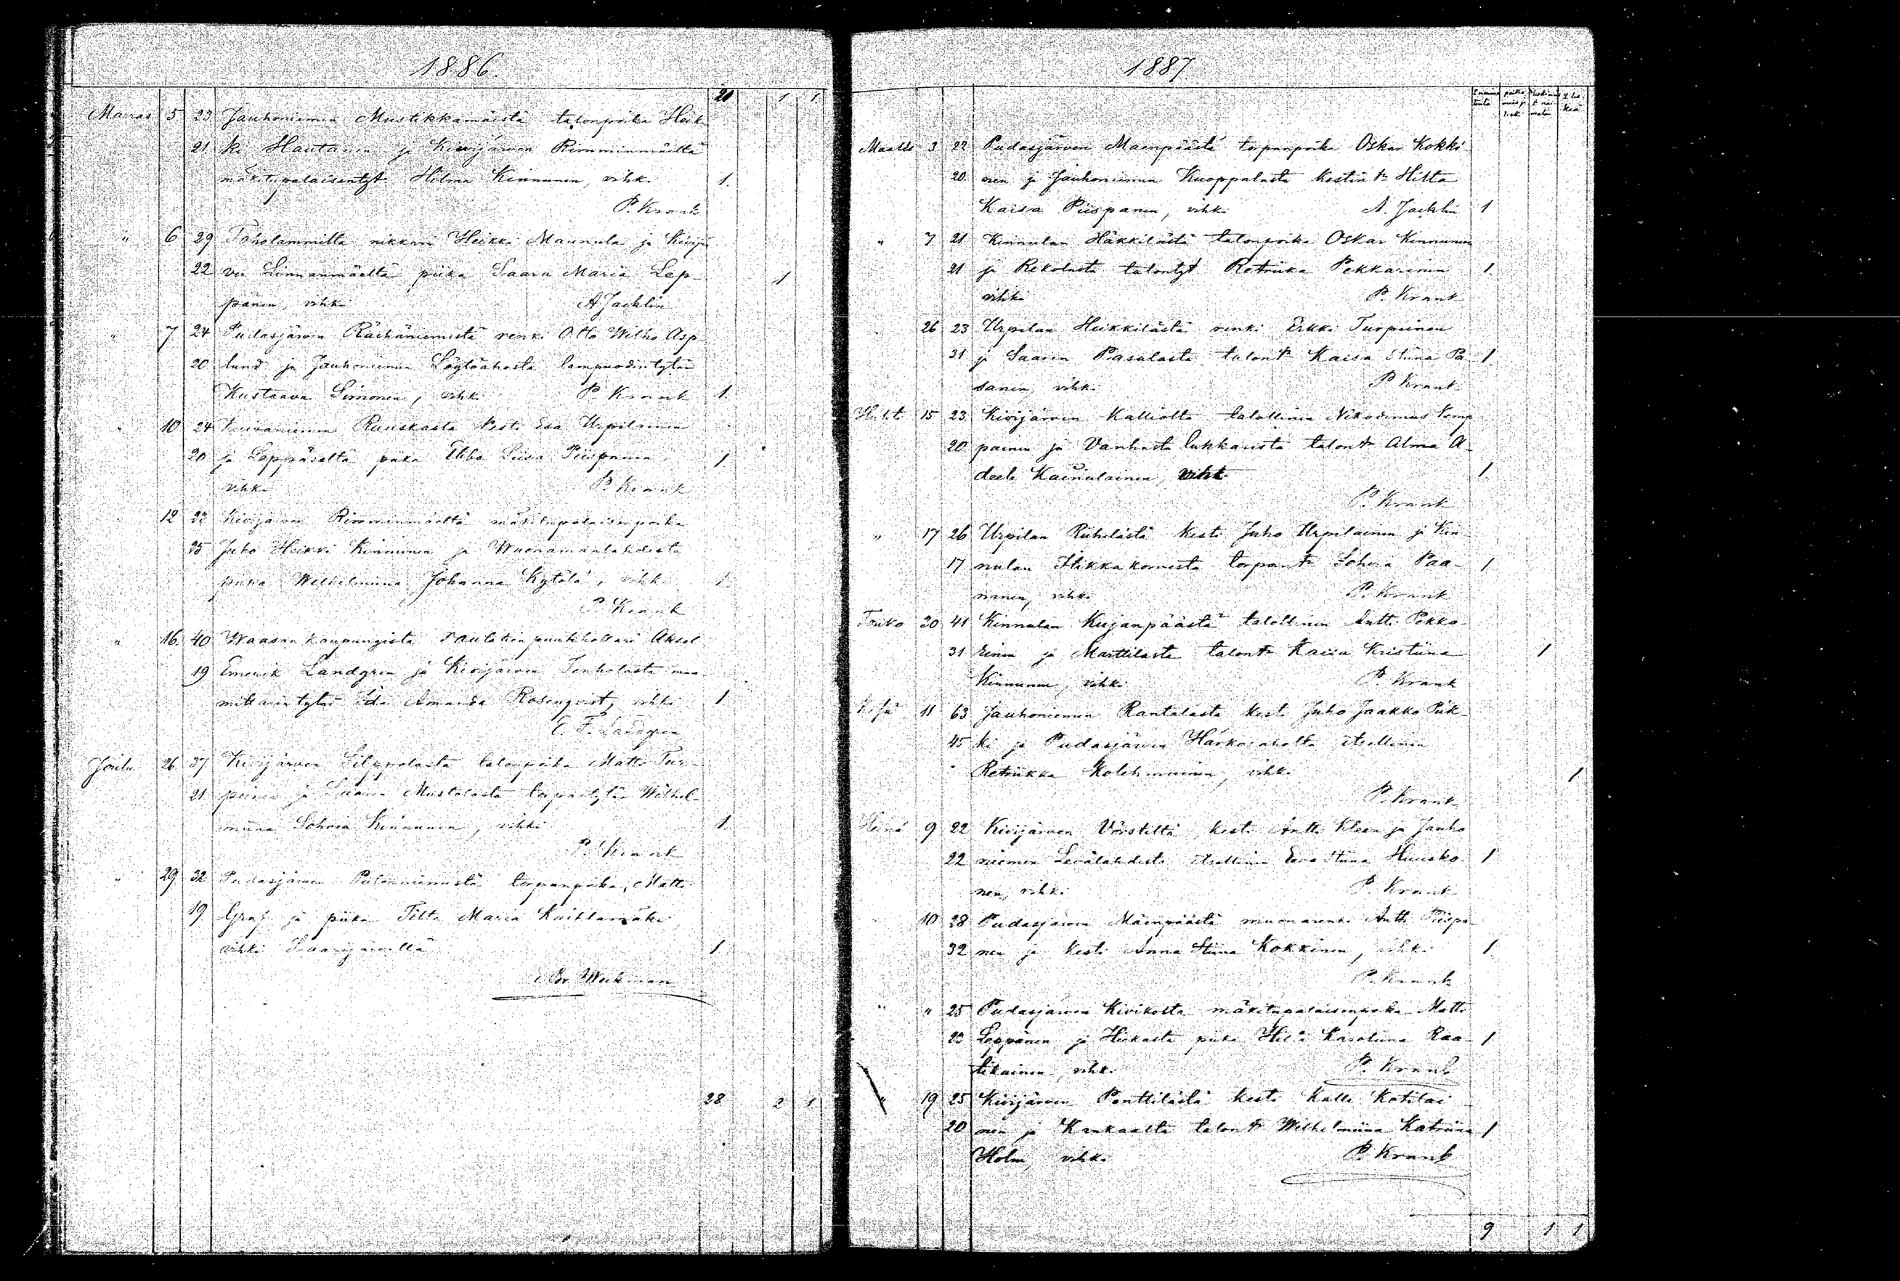 1886.
20 1 1
Marras 5 23 Jauhoniemen Mustikkamäeltä talonpoika Heik-
21 ki Hautanen ja Kivijärven Rimminmäeltä
mäkitupalaisentyt. Hilma Kinnunen, vihk. 1.
P. Krank
" 6 29 Toholammilta nikkari Heikki Maunula ja Kivijär
22 ven Linnanmäeltä piika Saara Maria Lep- 1
pänen, vihki A. Jacklin
" 7 24 Pudasjärven Räihäniemestä renki Otto Wilho Asp-
20 lund ja Jauhoniemen Löytöahosta lampuodintytär
Kustaava Simonen, vihki P. Krank 1.
" 10 24 Ruuskasta Kesti Esa Urpilainen
20 ja Leppäseltä piika Ebba Liisa Piispanen 1
vihki P. Krank
12 22 Kivijärven Rimminmäeltä mäkitupalaisenpoika
25 Juho Heikki Kinnunen ja Wuonamanlahdesta
piika Wilhelmiina Johanna Kytölä, vihki 1.
P. Krank
" 16. 40 Waasan kaupungista rautatien puutihollari Aksel
19 Emerik Landgren ja Kivijärven Tenholasta maa-
mittarintytär Ida Amanda Rosenqvist, vihki 1
E. F. Landgren
Joulu 26 37 Kivijärven Lilppolasta talonpoika Matti Tur-
21 peinen ja Saaren Mustalasta torparintytär Wilhel-
miina Sohvia Kinnunen, vihki 1.
P. Krank
" 29 32 Pudasjärven torpanpoika Matti
19 Graf ja piika Tilta Maria
vihki Saarijärvellä 1
Weckman
28 2 1

1887
Maalis 3 22 Pudasjärven Mäenpäästä torpanpoika Oskar Kokki-
20 nen ja Jauhoniemen Kuoppalasta kestint. Hilta
Kaisa Piispanen, vihki A. Jacklin 1
" 7 21 Kinnulan Häkkilästä talonpoika Oskar Kinnunen
21 ja Rekolasta talontyt. Retriika Pekkarinen 1
vihki P. Krank
26 23 Urpilan Heikkilästä renki Erkki Turpeinen
31 ja Saaren Pasalasta talont. Kaisa Stiina Pa- 1
sanen, vihki P. Krank
Huht 15 23 Kivijärven Kalliolta talollinen Nikodemus Komp-
20 painen ja Vanhasta lukkarista talont. Alma A-
deele Kainulainen, vihk. 1
P. Krank
" 17 26 Urpilan Riihelästä Kesti Juho Urpilainen ja Kin-
17 nulan Hikkakorvesta torpant. Sohvia Paa- 1
nanen, vihki P. Krank
Touko 20 41 Kinnulan Kujanpäästä talollinen Antti Pekka-
31 rinen ja Marttilasta talont. Kaisa Kristiina 1
Kinnunen, vihki P. Krank
Kesä 11 63 Jauhoniemen Rantalasta kesti Juho Jaakko Piik-
45 ki ja Pudasjärven Härkösaholta itsellinen
Retriikka Kolehmainen, vihki 1
P. Krank
Heinä 9 22 Kivijärven Vörstiltä, kesti Antti Kleen ja Jauho
22 niemen Levälahdesta itsellinen Eeva Stiina Huisko- 1
nen, vihki P. Krank
10 28 Pudasjärven Mäenpäästä muonarenki Antti Piispa-
32 nen ja Kesti Anna Stiina Kokkinen, vihki 1
P. Krank
" " 25 Pudasjärven Kivikosta mäkitupalaisenpoika Matti
23 Leppänen ja Hiekasta piika Hilta Karoliina Raa- 1
tikainen, vihki P. Krank
" 19 25 Kivijärven Penttilästä kesti Kalle Kotilai-
20 nen ja Kankaalta talont. Wilhelmiina Katriina 1
Holm, vihki P. Krank
9 1 1